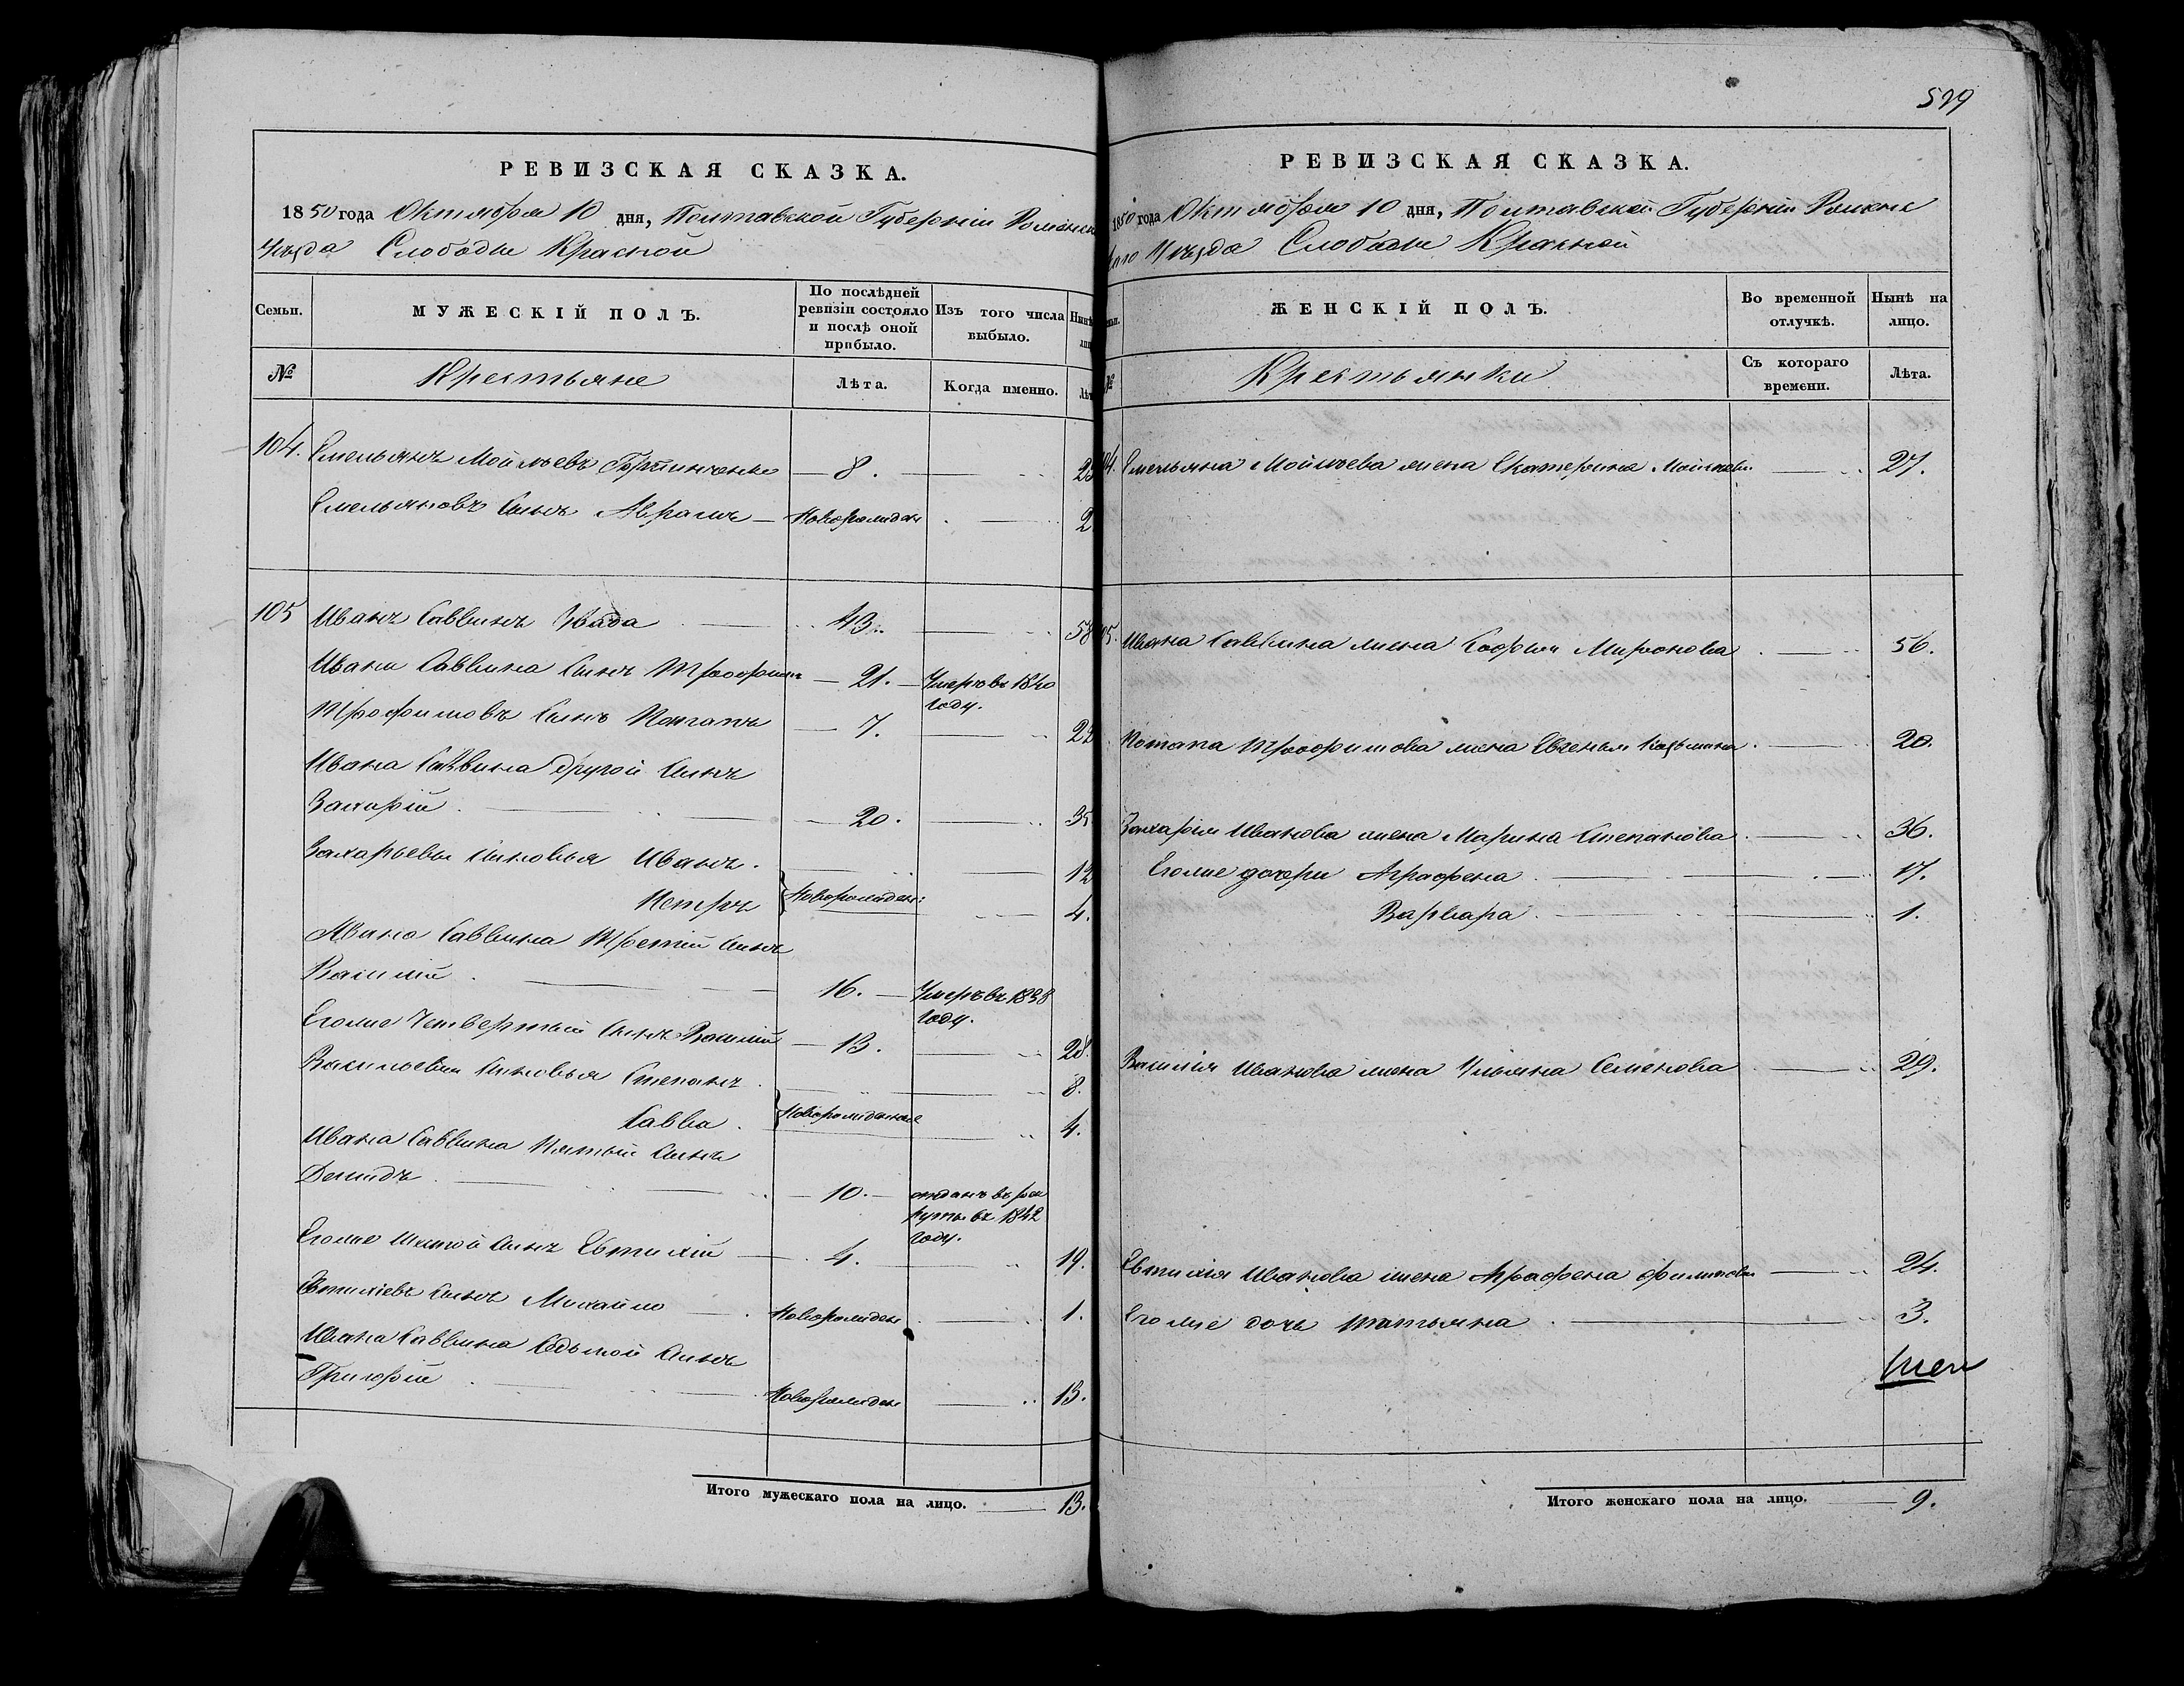 РЕВИЗСКАЯ СКАЗКА.
1850 года Октября 10 дня, Полтавской Губерніи Роменск
Уѣзда Слободы Красной
Семьи.
МУЖЕСКІЙ ПОЛЪ.
По послѣдней
ревизіи состояло
и послѣ оной
прибыло.
Изъ того числа
выбыло.
№
Крестьяне
Лѣта.
Когда именно.
104. Емельянъ Мойсѣевъ — 8. —
Емельяновъ Сынъ Аврамъ — Новорожден — 2
105 Иванъ Саввинъ — 43 — 58
Ивана Саввина Сынъ Трофимъ — 21. — Умеръ въ 1840
году.
Трофимовъ Сынъ Потапъ — 7. — 22
Ивана Саввина другой Сынъ
Захарій — 20. — 35
Захарьевы Сыновья Иванъ. — 12
Петръ } Новорожден: — 4.
Ивана Саввина Третій Сынъ
Василій — 16. — Умеръ въ 1838
году.
Егоже Четвертый Сынъ Василій — 13. — 28.
Васильевы Сыновья Степанъ — 8.
Савва } Новорожденые — 4.
Ивана Саввина Пятый Сынъ
Демидъ — 10. — отданъ въ рек
руты въ 1842
году.
Егоже Шестой Сынъ Евтихій — 4. — 19.
Евтихіевъ Сынъ Михайло — Новорожден — 1.
Ивана Саввина Седьмой Сынъ
Григорій — Новорожден — 13.
Итого мужескаго пола на лицо. — 13.
599
РЕВИЗСКАЯ СКАЗКА.
1850 года Октября 10 дня, Полтавской Губерніи Роменс
каго Уѣзда Слободы Красной
ЖЕНСКІЙ ПОЛЪ.
Во временной
отлучкѣ.
Нынѣ на
лицо.
№
Крестьянки
Съ котораго
времени.
Лѣта.
104. Емельяна Мойсѣева жена Екатерина — 27.
105. Ивана Саввина жена Софья Миронова — 56.
Потапа Трофимова жена Евгенья Козьмина — 20.
Захарія Иванова жена Марина Степанова — 36.
Егоже дочери Аграфена — 17.
Варвара — 1.
Василія Иванова жена Ульяна Семенова — 29.
Евтихія Иванова жена Аграфена — 24.
Егоже дочь Татьяна — 3.
Итого женскаго пола на лицо. — 9.